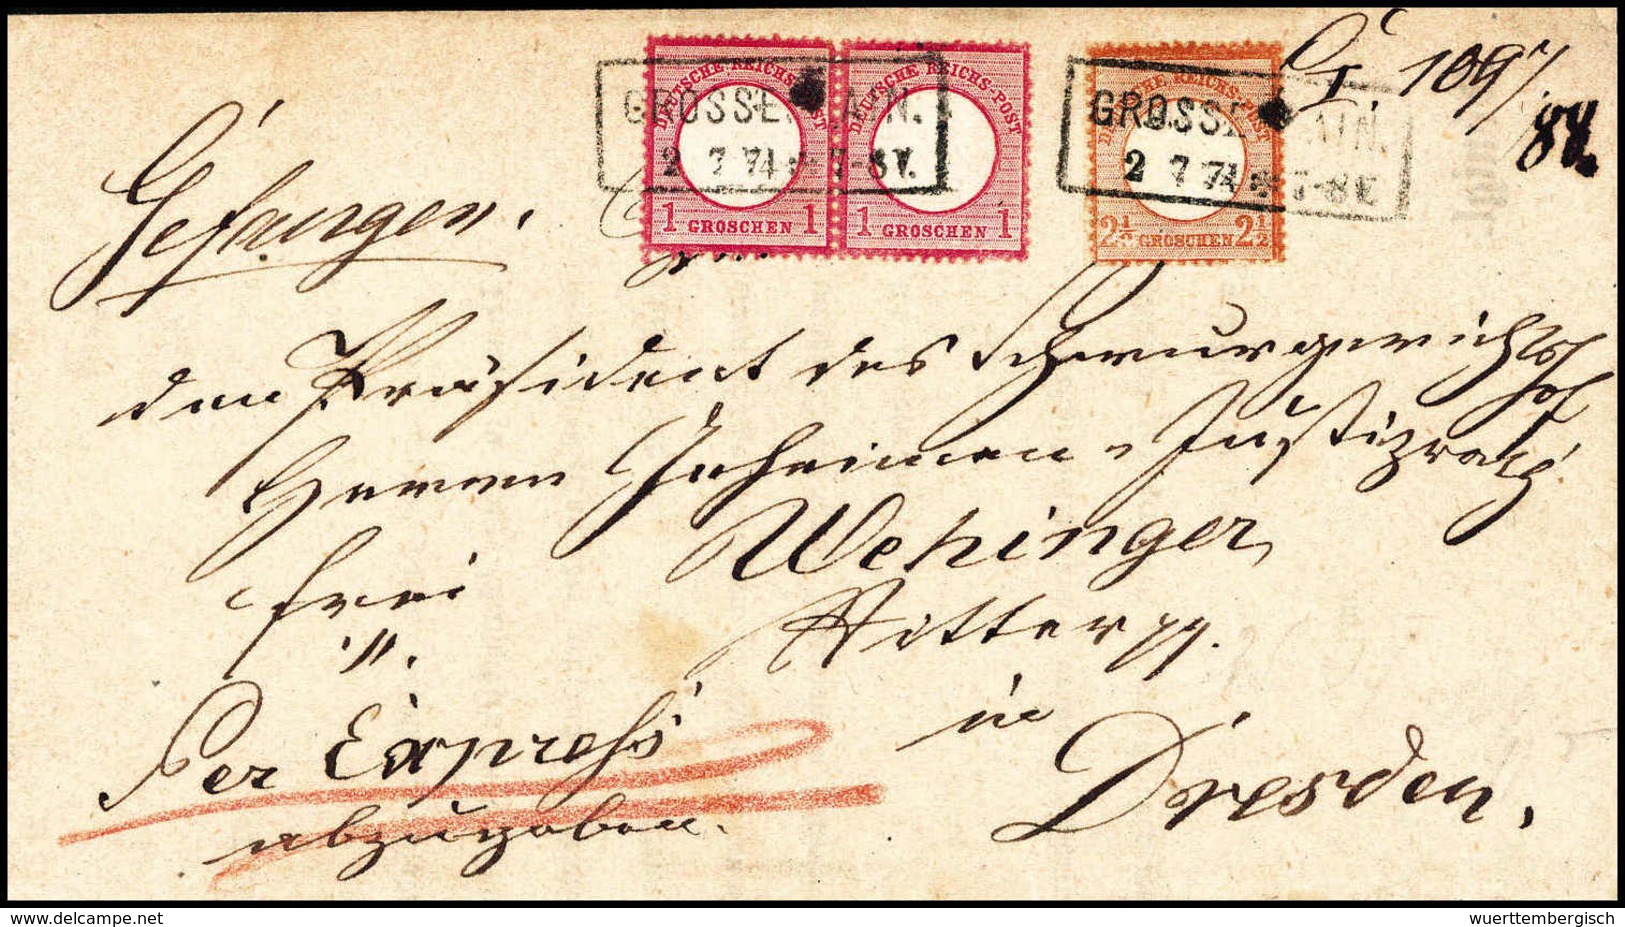 I 1097/
88.
DEUTSCHE REICHS-POST
1 GROSCHEN 1
DEUTSCHE REICHS-POST
1 GROSCHEN 1
DEUTSCHE REICHS-POST
2½ GROSCHEN 2½
GROSSENHAIN.
2 7 74 * 7-8V.
GROSSENHAIN.
2 7 74 * 7-8V.
Gefangen.
den Präsident des Schwurgerichtshof
Herrn Geheimen Justizrath
Wehinger,
frei
Ritter pp.
Per Express
in
abzugeben.
Dresden.
www.delcampe.net
wuerttembergisch